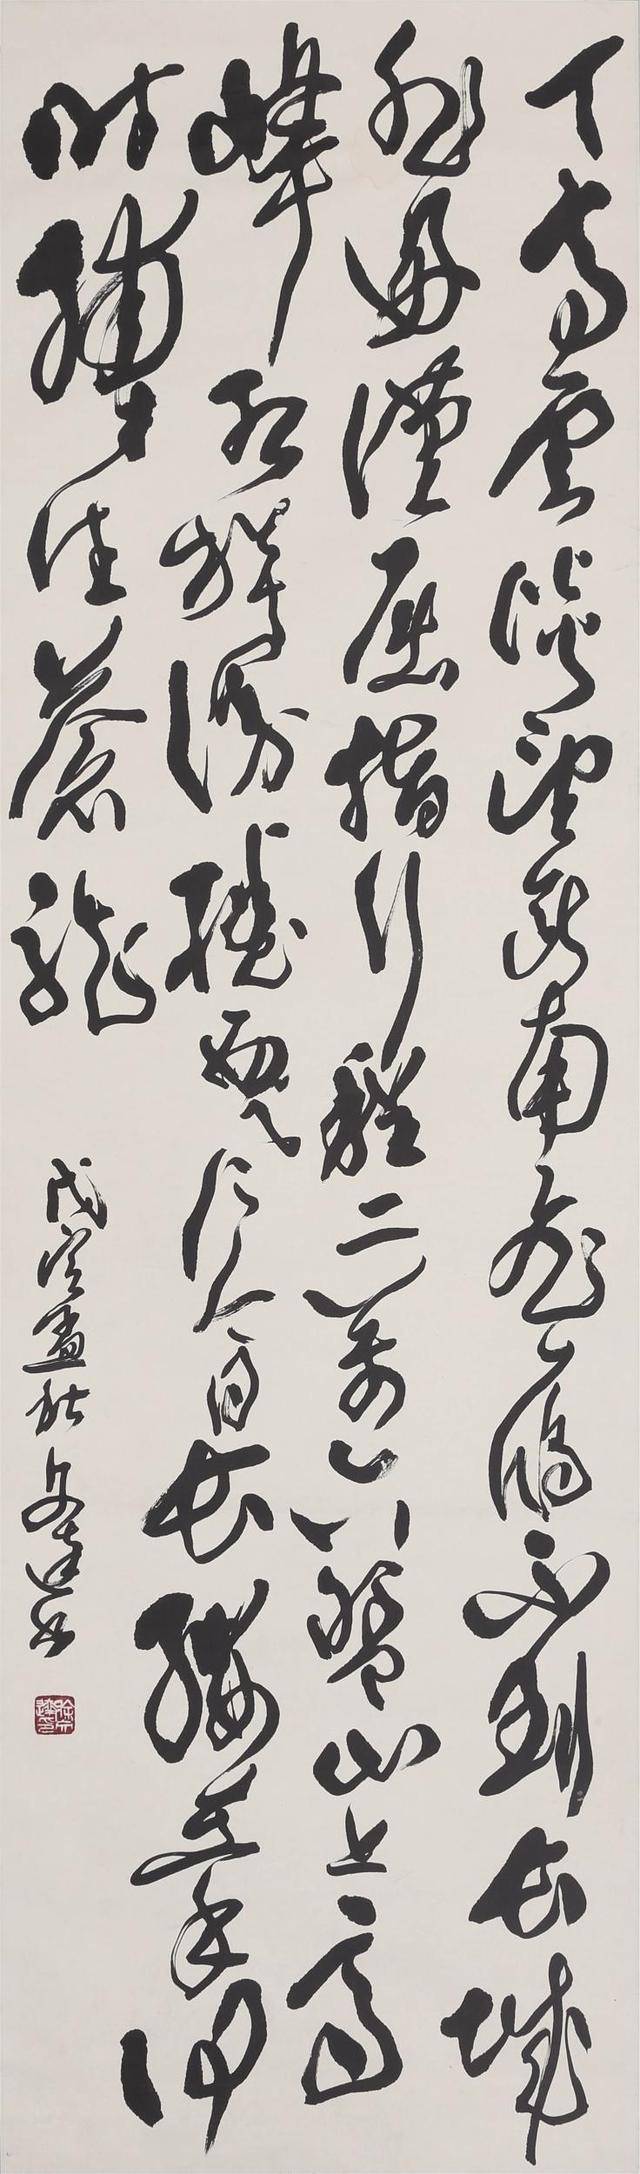 天高雲淡望断南飛鴈不到長城
非好漢屈指行程二萬六盤山上高
峰紅旗漫捲西風今日長纓在手何
時縛住蒼龍
戊寅孟秋文达书
徐文達印